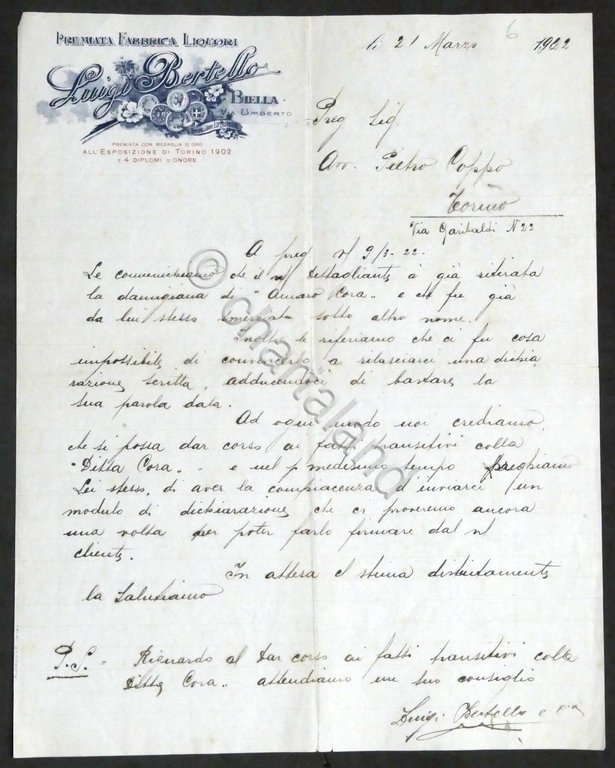 PREMIATA FABBRICA LIQUORI
Luigi Bertello
BIELLA
VIA UMBERTO
PREMIATA CON MEDAGLIA D'ORO
ALL'ESPOSIZIONE DI TORINO 1902
E 4 DIPLOMI D'ONORE
6
li 21 Marzo 1922
Preg Sig.
Avv. Pietro Coppo
Torino
Via Garibaldi N 22
A preg 9/3-22.
Le comunichiamo che il Dettagliante à già ritirata
la damigiana di "Amaro Cora" e che fu già
da lui stesso smerciata sotto altro nome.
Inoltre le riferiamo che ci fu cosa
impossibile di convincerlo a rilasciarci una dichia
razione scritta, adducendoci di bastare la
sua parola data.
Ad ogni modo noi crediamo,
che si possa dar corso ai fatti transitivi colla
"Ditta Cora" e nel medesimo tempo preghiamo
Lei stesso, di aver la compiacenza d'inviarci un
modulo di dichiarazione che ci proveremo ancora
una volta per poter farlo firmare dal
cliente.
In attesa stima distintamente
la Salutiamo
P.S. = Riguardo al dar corso ai fatti transitivi colla
Ditta Cora attendiamo un suo consiglio
Luigi Bertello e
© chartaland